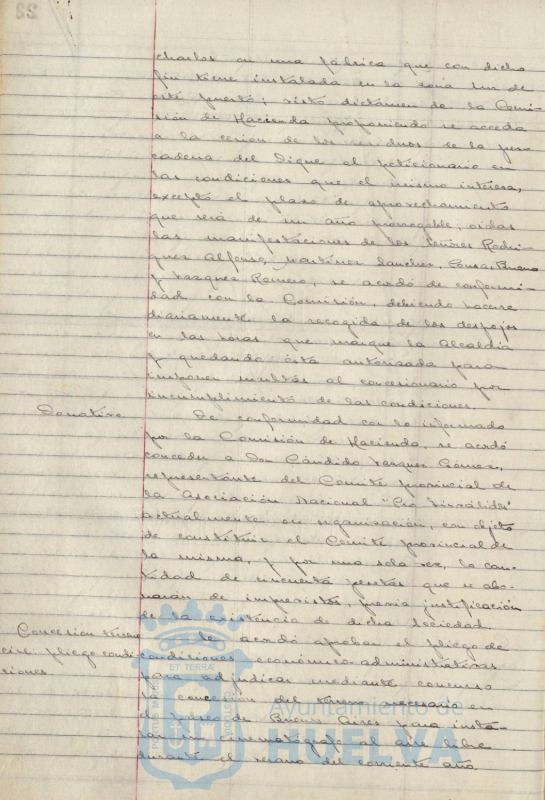 22
charlos en una fábrica que con dicho
fin tiene instalada en la zona sur de
este puerto; visto dictámen de la Comi-
sión de Hacienda proponiendo se acceda
a la cesión de los residuos de la pes-
cadería del Dique al peticionario en
las condiciones que el mismo interesa,
excepto el plazo de aprovechamiento
que será de un año prorrogable, oidas
las manifestaciones de los Señores Rodri-
guez Alfonso, Martínez Sanchez, Bueno
y Vazquez Romero, se acordó de conformi-
dad con la Comisión, debiendo hacerse
diariamente la recogida de los despojos
en las horas que marque la Alcaldía
y quedando ésta autorizada para
imponer multas al concesionario por
incumplimiento de las condiciones.
Donativo
De conformidad con lo informado
por la Comisión de Hacienda, se acordó
conceder a Don Cándido Vazquez Gómez,
representante del Comité provincial de
la Asociación Nacional "Cio Inválidos"
actualmente en organización, con objeto
de constituir el Comité provincial de
la misma, y por una sola vez, la can-
tidad de cincuenta pesetas que se abo-
narán de imprevistos, previa justificación
de la existencia de dicha Sociedad.
Concesion terreno
cine. pliego condi
ciones.
Se acordó aprobar el pliego de
condiciones económico-administrativas
para adjudicar mediante concurso
la concesión del terreno necesario en
el paseo de Buenos Aires para insta-
lar un cinematógrafo al aire libre
durante el verano del corriente año
PORTUS MARIS
ET TERRAE
CUSTODIA
Ayuntamiento de
HUELVA